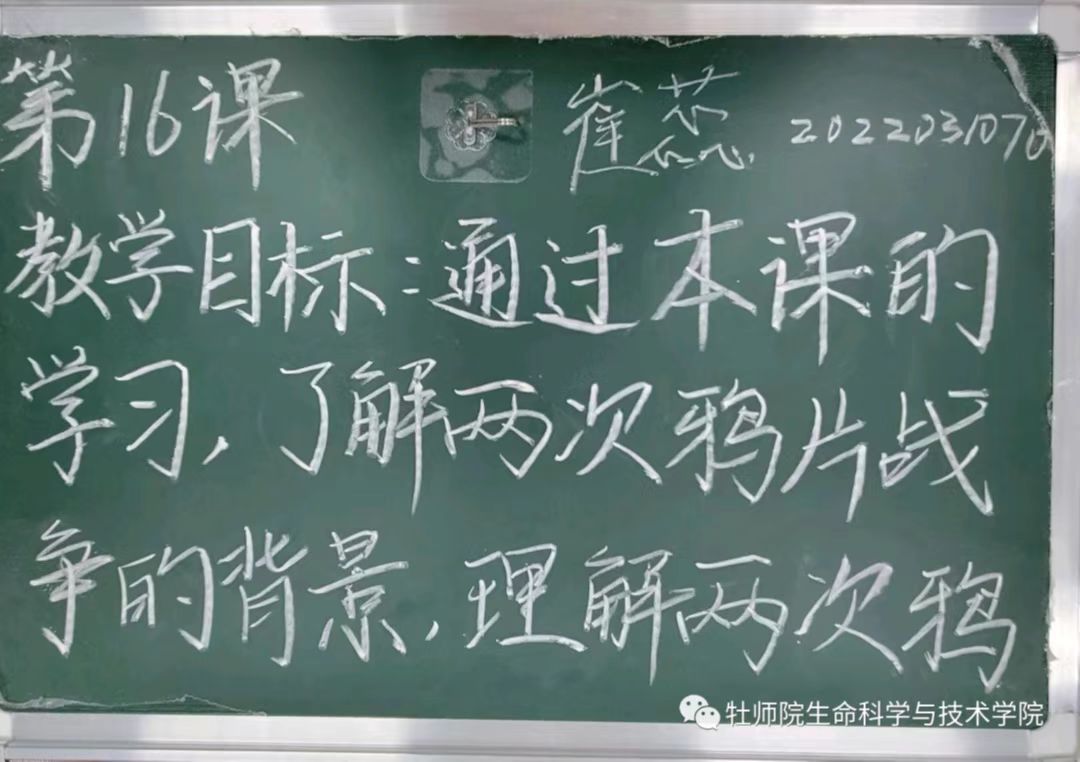 第16课 崔蕊 2022031070
教学目标:通过本课的
学习,了解两次鸦片战
争的背景,理解两次鸦
牡师院生命科学与技术学院